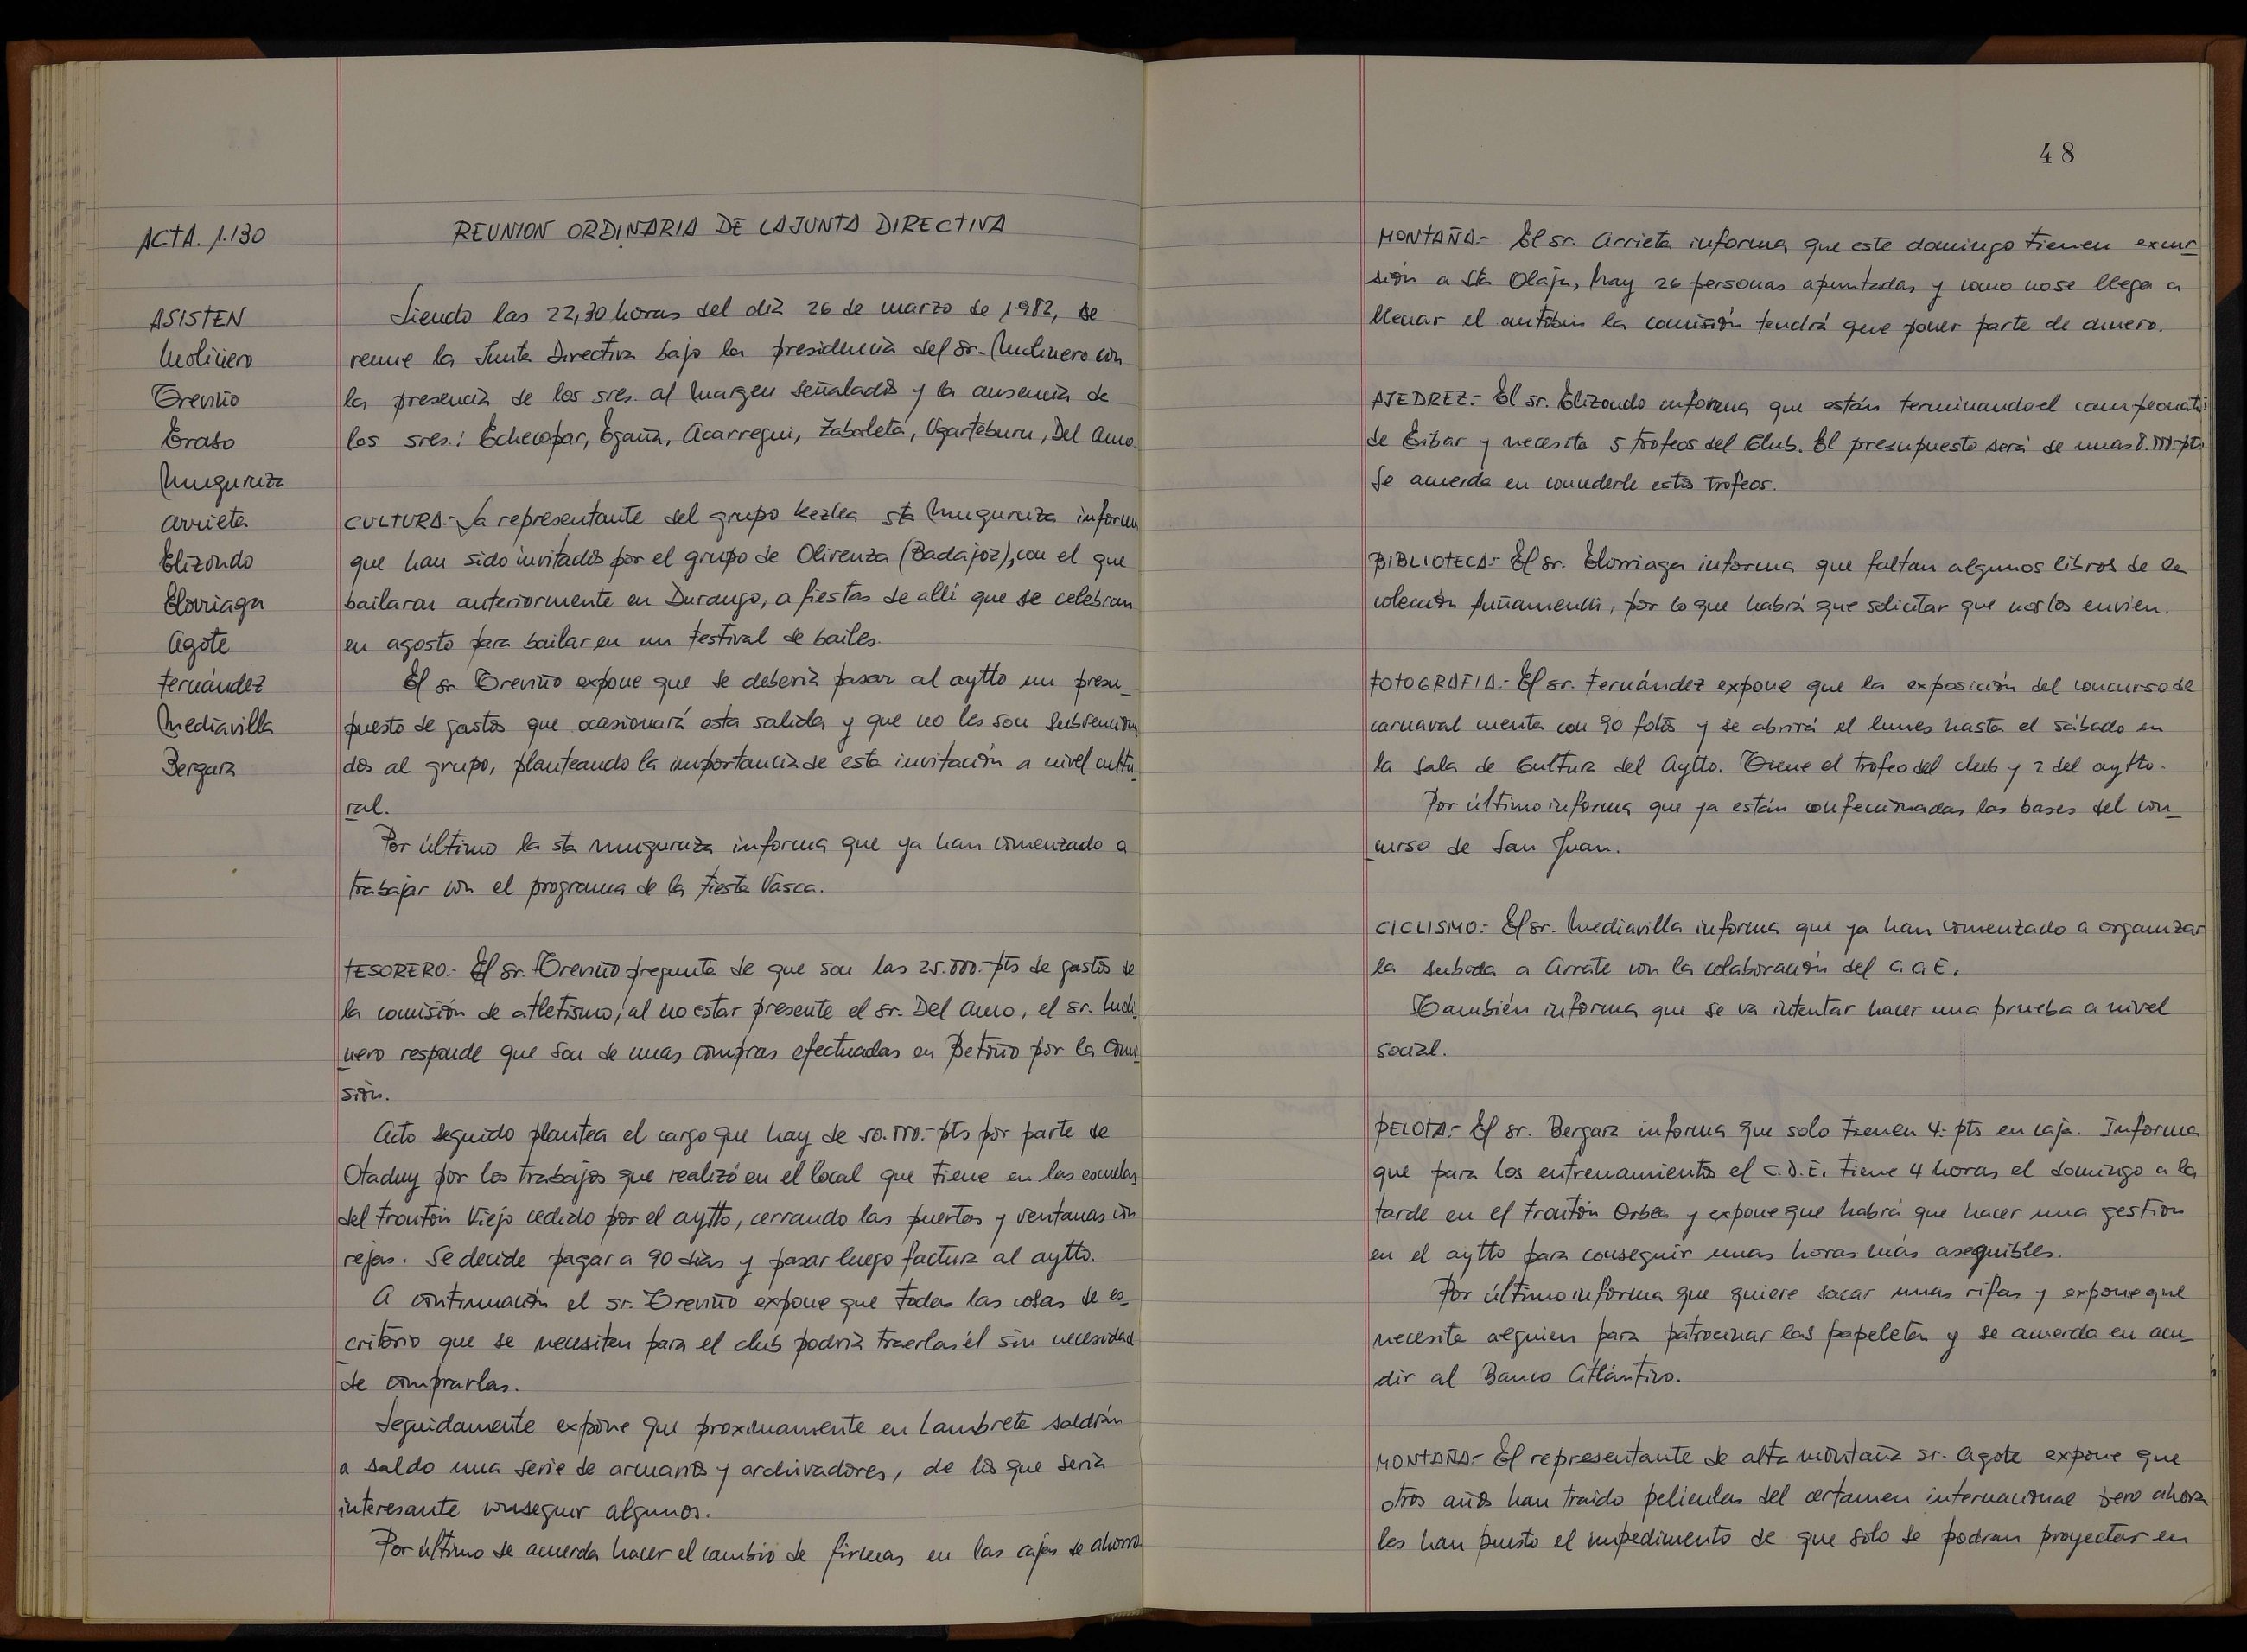 ACTA. 1.130
ASISTEN
Molinero
Treviño
Eraso
Muguruza
Arrieta
Elizondo
Elorriaga
Agote
Fernández
Mediavilla
Bergara
REUNION ORDINARIA DE LA JUNTA DIRECTIVA
Siendo las 22,30 horas del día 26 de marzo de 1982, se
reune la Junta Directiva bajo la presidencia del Sr. Molinero con
la presencia de los sres. al margen señalados y la ausencia de
los sres.: Echeopar, Egaña, Acarregui, Zabaleta, Ugarteburu, Del Amo.
CULTURA.- La representante del grupo Kezka sta Muguruza informa
que han sido invitados por el grupo de Olivenza (Badajoz), con el que
bailaron anteriormente en Durango, a fiestas de allí que se celebran
en agosto para bailar en un festival de bailes.
El sr. Treviño expone que se debería pasar al aytto un presu_
puesto de gastos que ocasionará esta salida y que no les son subvenciona
dos al grupo, planteando la importancia de esta invitación a nivel cultu_
ral.
Por último la sta Muguruza informa que ya han comenzado a
trabajar con el programa de la Fiesta Vasca.
TESORERO.- El sr. Treviño pregunta de que son las 25.000.- pts de gastos de
la comisión de atletismo, al no estar presente el sr. Del Amo, el sr. Moli_
nero responde que son de unas compras efectuadas en Betoño por la Comi_
sión.
Acto seguido plantea el cargo que hay de 50.000.- pts por parte de
Otaduy por los trabajos que realizó en el local que tiene en las escuelas
del Frontón Viejo cedido por el aytto, cerrando las puertas y ventanas con
rejas. Se decide pagar a 90 días y pasar luego factura al aytto.
A continuación el sr. Treviño expone que todas las cosas de es_
critorio que se necesiten para el club podría traerlas él sin necesidad
de comprarlas.
Seguidamente expone que proximamente en Lambreta saldrán
a saldo una serie de armarios y archivadores, de los que sería
interesante conseguir algunos.
Por último se acuerda hacer el cambio de firmas en las cajas de ahorro.
48
MONTAÑA.- El sr. Arrieta informa que este domingo tienen excur_
sión a Sta Olaja, hay 26 personas apuntadas y como no se llega a
llenar el autobus la comisión tendrá que poner parte de dinero.
AJEDREZ.- El sr. Elizondo informa que están terminando el campeonato
de Eibar y necesita 5 trofeos del Club. El presupuesto será de unas 8.000.- pts.
Se acuerda en concederle estos trofeos.
BIBLIOTECA.- El sr. Elorriaga informa que faltan algunos libros de la
colección Auñamendi, por lo que habrá que solicitar que nos los envien.
FOTOGRAFIA.- El sr. Fernández expone que la exposición del concurso de
carnaval cuenta con 90 fotos y se abrirá el lunes hasta el sábado en
la Sala de Cultura del Aytto. Tiene el trofeo del club y 2 del aytto.
Por último informa que ya están confeccionadas las bases del con_
curso de San Juan.
CICLISMO.- El sr. Mediavilla informa que ya han comenzado a organizar
la subida a Arrate con la colaboración del C.C.E.
También informa que se va intentar hacer una prueba a nivel
social.
PELOTA.- El sr. Bergara informa que solo tienen 4.- pts en caja. Informa
que para los entrenamientos el C.D.E. tiene 4 horas el domingo a la
tarde en el Frontón Orbea y expone que habrá que hacer una gestión
en el aytto para conseguir unas horas más asequibles.
Por último informa que quiere sacar unas rifas y expone que
necesita alguien para patrocinar las papeletas y se acuerda en acu_
dir al Banco Atlántico.
MONTAÑA.- El representante de alta montaña sr. Agote expone que
otros años han traido peliculas del certamen internacional pero ahora
les han puesto el impedimento de que solo se podran proyectar en